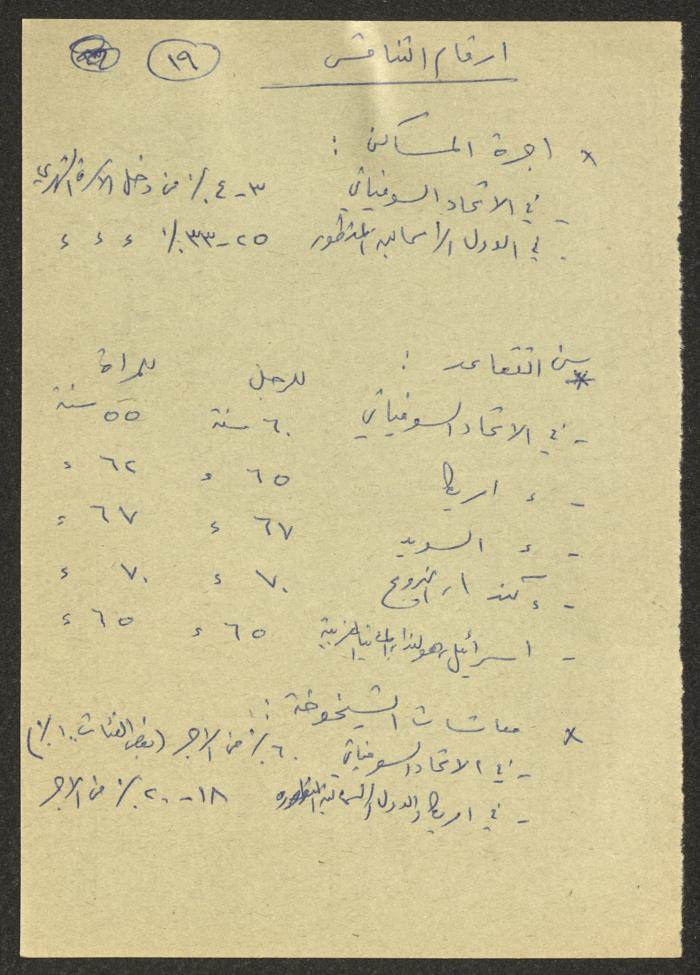 ارقام التنافس ١٩
* اجرة المساكن :
- في الاتحاد السوفياتي ٣-٤٪ من دخل الاسرة الشهري
- في الدول الرأسمالية المتطورة ٢٥-٣٣٪ ء ء ء
* سن التقاعد : للرجل للمرأة
- في الاتحاد السوفياتي ٦٠ سنة ٥٥ سنة
- ء امريكا ٦٥ ء ٦٢ ء
- ء السويد ٦٧ ء ٦٧ ء
- ء كندا، النروج ٧٠ ء ٧٠ ء
- اسرائيل، هولندا، المانيا الغربية ٦٥ ء ٦٥ ء
* معاشات الشيخوخة :
- في الاتحاد السوفياتي ٦٠٪ من الاجر (بعض الفئات ١٠٠٪)
- في امريكا والدول الرأسمالية المتطورة ١٨-٢٠٪ من الاجر